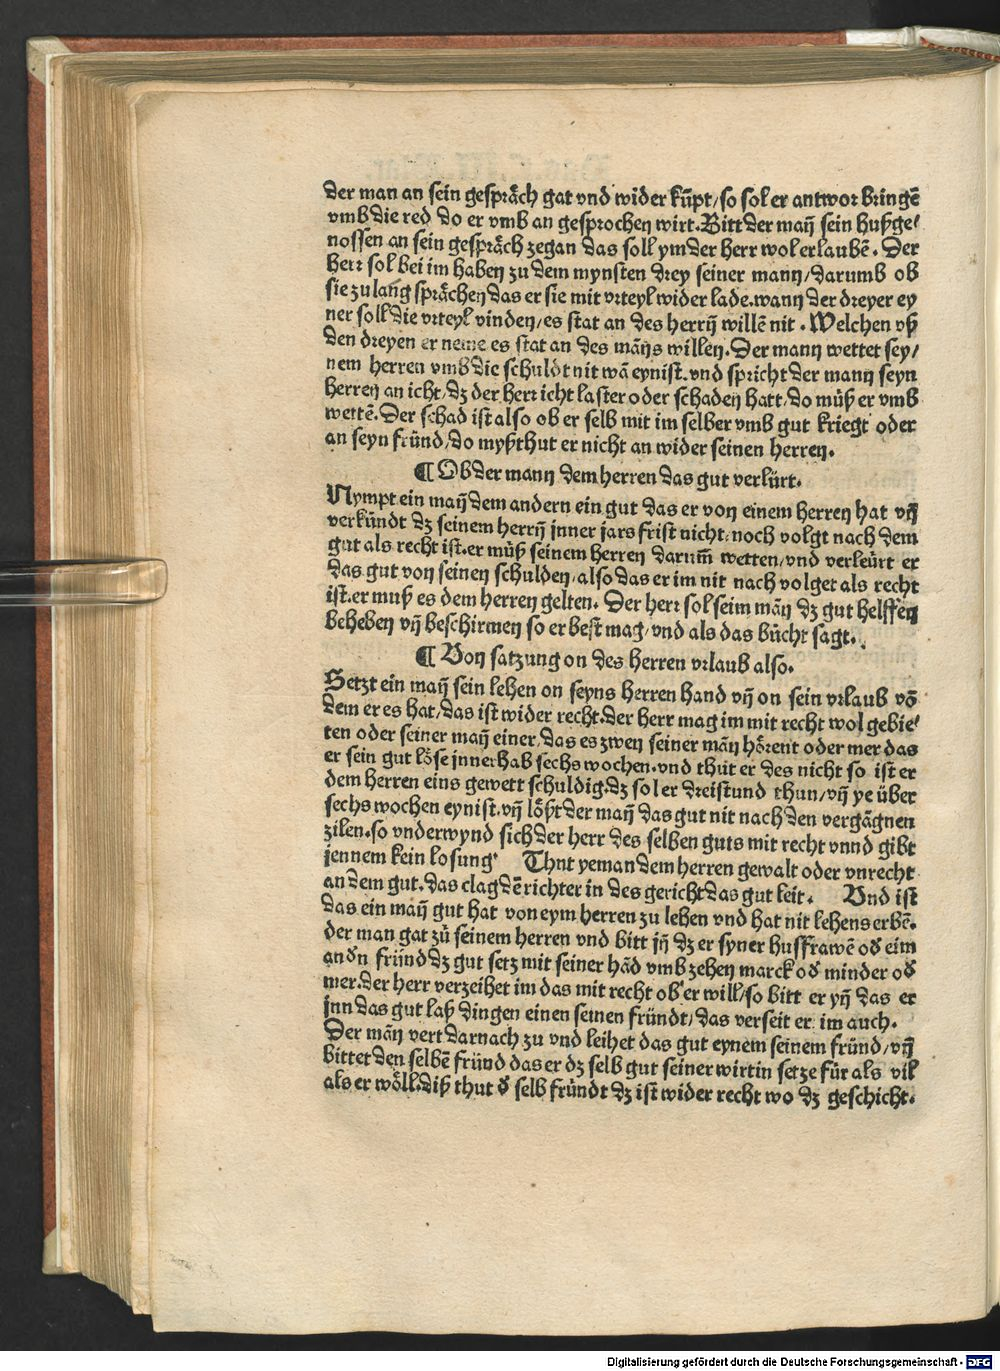 der man an sein gespräch gat vnd wider kūpt/so sol er antwor bringē
vmb die red do er vmb an gesprochen wirt. Bitt der mañ sein hußge⸗
nossen an sein gespräch zegan das soll ym der herr wol erlaubē. Der
herr sol bei im haben zu dem mynsten drey seiner mann/darumb ob
sie zu lang sprächen das er sie mit vrteyl wider lade. wann der dreyer ey
ner soll die vrteyl vinden/es stat an des herrñ willē nit. Welchen vß
den dreyen er neme es stat an des māns willen. Der mann wettet sey/
nem herren vmb die schuldt nit wā eynist. vnd spricht der mann seyn
herren an icht/dz der herr icht laster oder schaden hatt/do müß er vmb
wettē. Der schad ist also ob er selb mit im selber vmb gut kriegt oder
an seyn fründ/do myßthut er nicht an wider seinen herren.
¶ Ob der mann dem herren das gut verlürt.
Nympt ein mañ dem andern ein gut das er von einem herren hat vñ
verkündt dz seinem herrñ jnner jars frist nicht/noch volgt nach dem
gut als recht ist. er müß seinem herren darum̄ wetten/vnd verleürt er
das gut von seinen schulden/also das er im nit nach volget als recht
ist. er muß es dem herren gelten. Der herr sol seim mān dz gut helffen
beheben vñ beschirmen so er best mag/vnd als das bůcht sagt.
¶ Von satzung on des herren vrlaub also.
Setzt ein mañ sein lehen on seyns herren hand vñ on sein vrlaub vō
dem er es hat/das ist wider recht. der herr mag im mit recht wol gebie⸗
ten oder seiner mañ einer/das es zwen seiner mān hörent oder mer das
er sein gut löse jnnerhab sechs wochen. vnd thut er des nicht so ist er
dem herren eins gewett schuldig. dz sol er dreistund thun/vñ ye über
sechs wochen eynist. vñ lößt der mañ das gut nit nach den vergāgnen
zilen. so vnderwynd sich der herr des selben guts mit recht vnnd gibt
jennem kein losung. Thut yeman dem herren gewalt oder vnrecht
an dem gut. das clag dē richter in des gericht das gut leit. Vnd ist
das ein mañ gut hat von eym herren zu lehen vnd hat nit lehens erbē.
der man gat zů seinem herren vnd bitt jñ dz er syner husffrawē oď eim
anďn fründ dz gut setz mit seiner hād vmb zehen marck oď minder oď
mer. der herr verzeihet im das mit recht ob er will/so bitt er yñ das er
jnn das gut laß dingen einen seinen fründt/das verseit er im auch.
Der mān vert darnach zu vnd leihet das gut eynem seinem fründ/vñ
bittet den selbē fründ das er dz selb gut seiner wirtin setze für als vil
als er wöll. diß thut ď selb fründt dz ist wider recht wo dz geschicht.
Digitalisierung gefördert durch die Deutsche Forschungsgemeinschaft - DFG